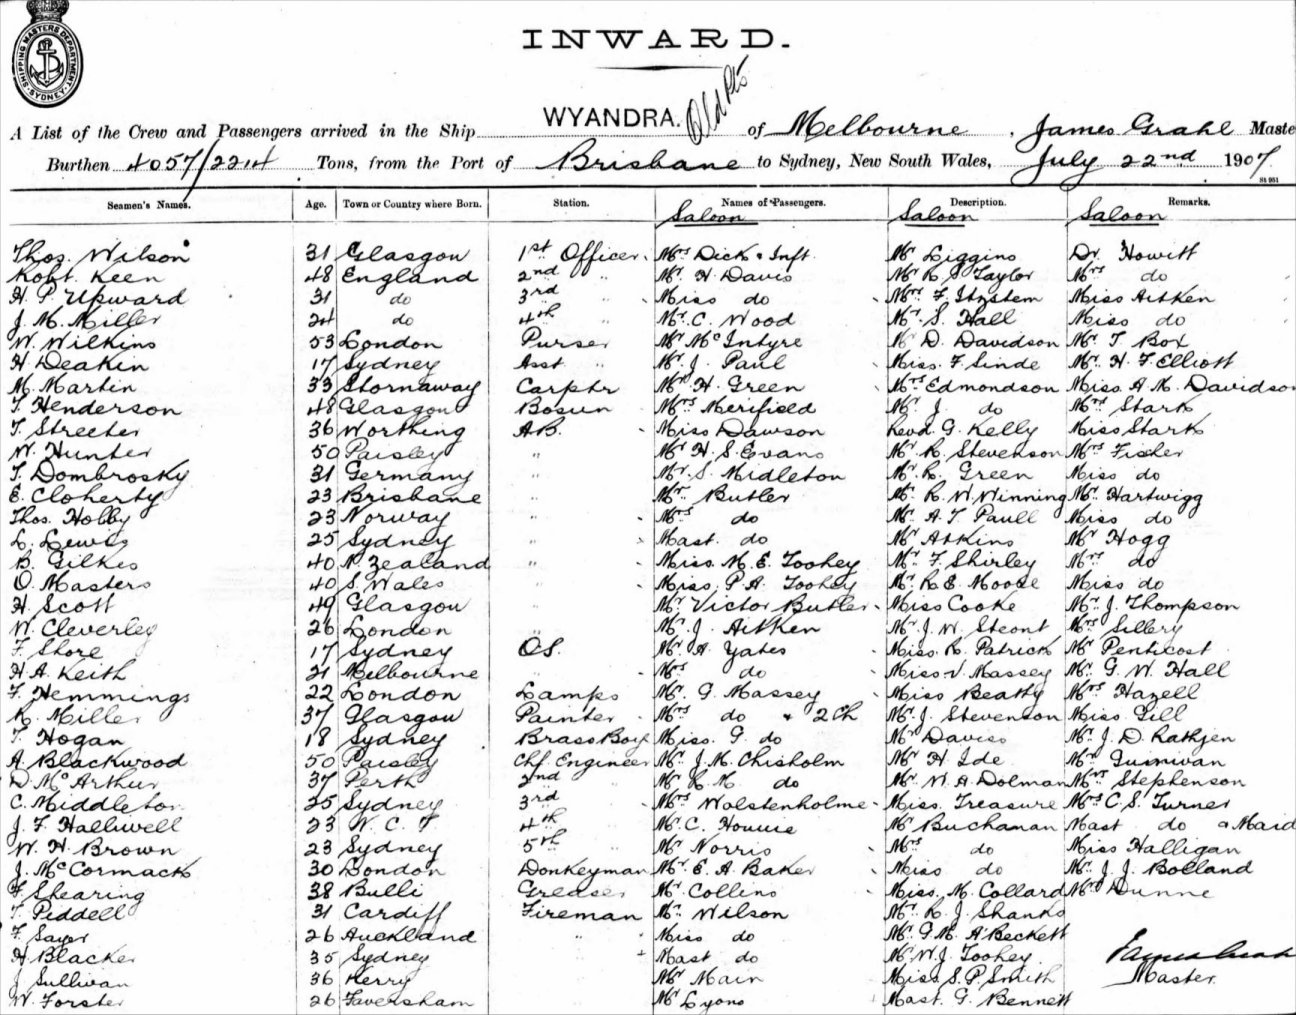 SHIPPING MASTERS DEPARTMENT SYDNEY
INWARD.
A List of the Crew and Passengers arrived in the Ship WYANDRA. Old Pts of Melbourne, James Grahl Maste
Burthen 4057/2214 Tons, from the Port of Brisbane to Sydney, New South Wales, July 22nd 1907
St 951
Seamen's Names. Age. Town or Country where Born. Station. Names of Passengers. Description. Remarks.
Saloon Saloon Saloon
Thos. Wilson 31 Glasgow 1st Officer Mrs Dick & Inft. Mr Liggins Dr. Howitt
Robt. Keen 48 England 2nd " Mr. H. Davis Mr R. S. Taylor Mrs do
H. P. Upward 31 do 3rd " Miss do Mrs F. Miss Aitken
J. M. Miller 24 do 4th " Mr. C. Wood Mr. S. Hall Miss do
W. Wilkins 53 London Purser Mr McIntyre D. Davidson Mr. T. Box
H. Deakin 17 Sydney Asst " Mr. J. Paul Miss. F. Sinde Mr. H. F. Elliott
M. Martin 33 Stornaway Carptr Mr H. Green Mrs Edmondson Miss. A. M. Davidson
T. Henderson 48 Glasgow Bosun Mrs Merifield Mr. J. do Mrs Stark
T. Streeter 36 Worthing A.B. Miss Dawson Revd. G. Kelly Miss Stark
W. Hunter 50 Paisley " Mr H. S. Evans Mr R. Stevenson Mrs Fisher
T. Dombrosky 31 Germany " Mr. S. Midleton Mr. R. Green Miss do
E. Cloherty 23 Brisbane " Mr. Butler Mr. R. W. Winning Mr. Hartwigg
Thos. Holby 23 Norway " Mrs do Mr. A. T. Paull Miss do
L. Lewis 25 Sydney " Mast. do Mr Atkins Mr Hogg
B. Gilkes 40 N. Zealand " Miss. M. E. Toohey Mr. F. Shirley Mrs do
O. Masters 40 S. Wales " Miss. P. A. Toohey Mr. R. E. Moore Miss do
H. Scott 49 Glasgow " Mr Victor Butler Miss Cooke Mr. J. Thompson
W. Cleverley 26 London " Mr. J. Aitken Mr. J. W. Steont Mrs Sillery
F. Shore 17 Sydney O.S. Mr A. Yates Miss. R. Patrick Mr Penticost
H. A. Keith 21 Melbourne " Mrs do Miss V. Massey Mr. G. W. Hall
F. Hemmings 22 London Lamps Mr. G. Massey Miss Beatty Mrs Hazell
R. Miller 37 Glasgow Painter Mrs do & 2 Ch Mr. J. Stevenson Miss. Gill
T. Hogan 18 Sydney Brass Boy Miss. G. do Mr Daviss Mr. J. D. Rathjen
A. Blackwood 50 Paisley Chf. Engineer Mr. J. M. Chisholm Mr H. Ide Mr. Guinivan
D. McArthur 37 Perth 2nd " Mr R. M. do Mr. W. A. Dolman Mrs Stephenson
C. Middleton 25 Sydney 3rd " Mrs Wolstenholme Miss. Treasure Mrs C. S. Turner
J. F. Halliwell 23 4th " Mr. C. Mr Buchanan Mast do & Maid
W. H. Brown 23 Sydney 5th " Mr Norris Mrs do Miss Halligan
J. McCormack 30 London Donkeyman Mr. E. A. Baker Miss do Mr. J. J. Bolland
F. Shearing 38 Bulli Greaser Mr. Collins Miss. M. Collard Mrs Dunne
T. Piddell 31 Cardiff Fireman Mr. Wilson Mr. R. J. Shanks
F. Sayer 26 Auckland " Miss do Mr. G. M. A'Beckett
H. Blacker 35 Sydney " Mast do Mr W. J. Toohey
J. Sullivan 36 Kerry Mr Main Miss. S. P. Smith Master.
W. Forster 26 Faversham Mr Lyons Mast. G. Bennett